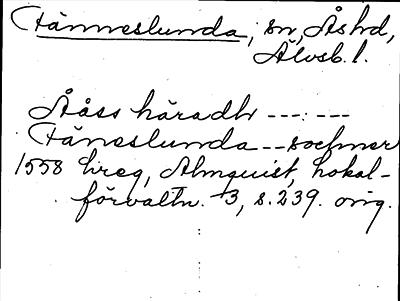 Tämneslunda, sn, Ås hd,
Älvsb. l.
Ååss häradh ---:---
Täneslunda -- sochner
1558 hreg, Almquist, Lokal-
förvaltn. 3, s. 239. orig.